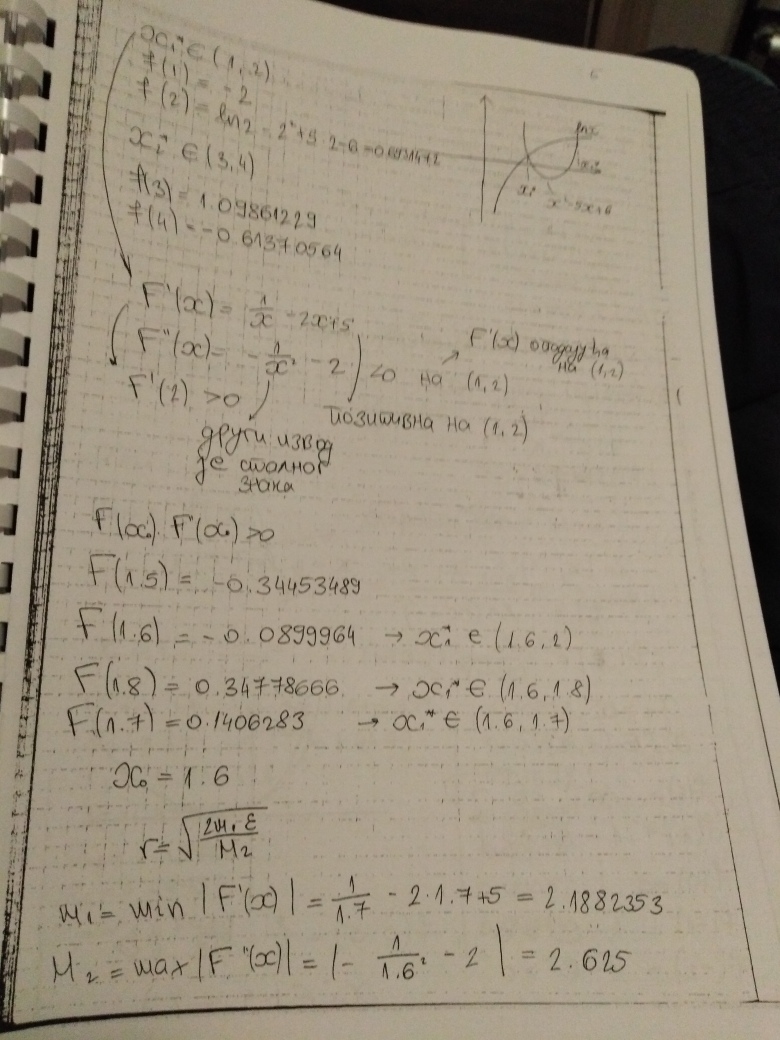 x₁* ∈ (1,2)
f(1) = -2
f(2) = ln2 - 2² + 5·2 - 6 = 0.6931472
x₂* ∈ (3,4)
f(3) = 1.09861229
f(4) = -0.61370564
lnx
x₂*
x₁*
x²-5x+6
F'(x) = 1/x - 2x+5
F''(x) = -1/x² - 2 <0 на (1,2)
F'(x) опадајућа
на (1,2)
F'(2) >0
позитивна на (1,2)
други извод
је сталног
знака
F(x₀)·F''(x₀) >0
F(1.5) = -0.34453489
F(1.6) = -0.0899964 → x₁* ∈ (1.6,2)
F(1.8) = 0.34778666 → x₁* ∈ (1.6,1.8)
F(1.7) = 0.1406283 → x₁* ∈ (1.6,1.7)
x₀ = 1.6
r = √(2m₁ε/M₂)
m₁ = min |F'(x)| = 1/1.7 - 2·1.7+5 = 2.1882353
M₂ = max|F''(x)| = |- 1/1.6² - 2| = 2.625